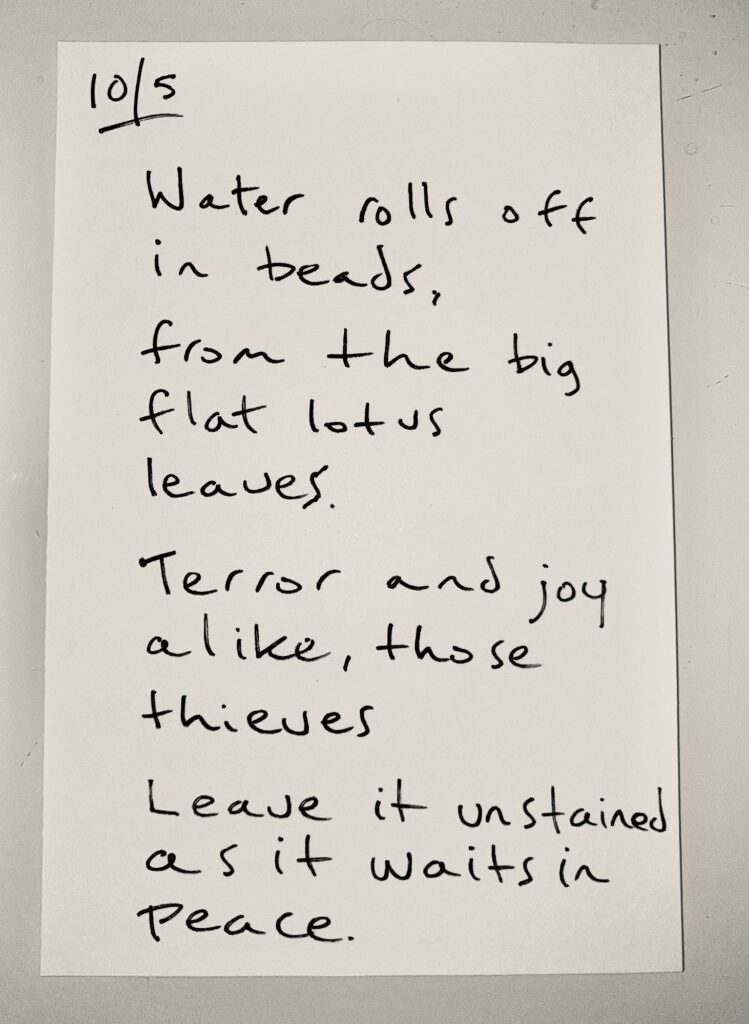 10/5
Water rolls off
in beads,
from the big
flat lotus
leaves.
Terror and joy
alike, those
thieves
Leave it unstained
as it waits in
peace.